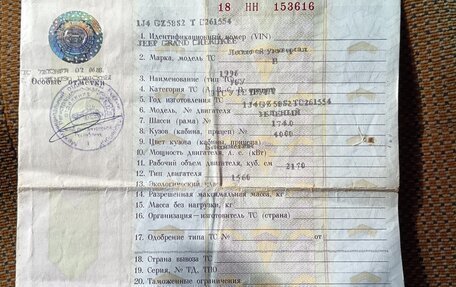 18 НН 153616
Особые отметки
1J4 GZ58S2 T C261554
1. Идентификационный номер (VIN)
JEEP GRAND CHEROKEE
2. Марка, модель ТС
Легковой универсал
B
3. Наименование (тип ТС)
1996
4. Категория ТС (A, B, C, D, прицеп)
5. Год изготовления ТС
6. Модель, № двигателя
1J4GZ58S2TC261554
7. Шасси (рама) №
ЗЕЛЕНЫЙ
8. Кузов (кабина, прицеп) №
174.0
9. Цвет кузова (кабины, прицепа)
4000
10. Мощность двигателя, л. с. (кВт)
11. Рабочий объем двигателя, куб. см
12. Тип двигателя
2170
13. Экологический
1560
14. Разрешенная максимальная масса, кг
15. Масса без нагрузки, кг
16. Организация—изготовитель ТС (страна)
17. Одобрение типа ТС № от
18. Страна вывоза ТС
19. Серия, № ТД, ТПО
20. Таможенные ограничения